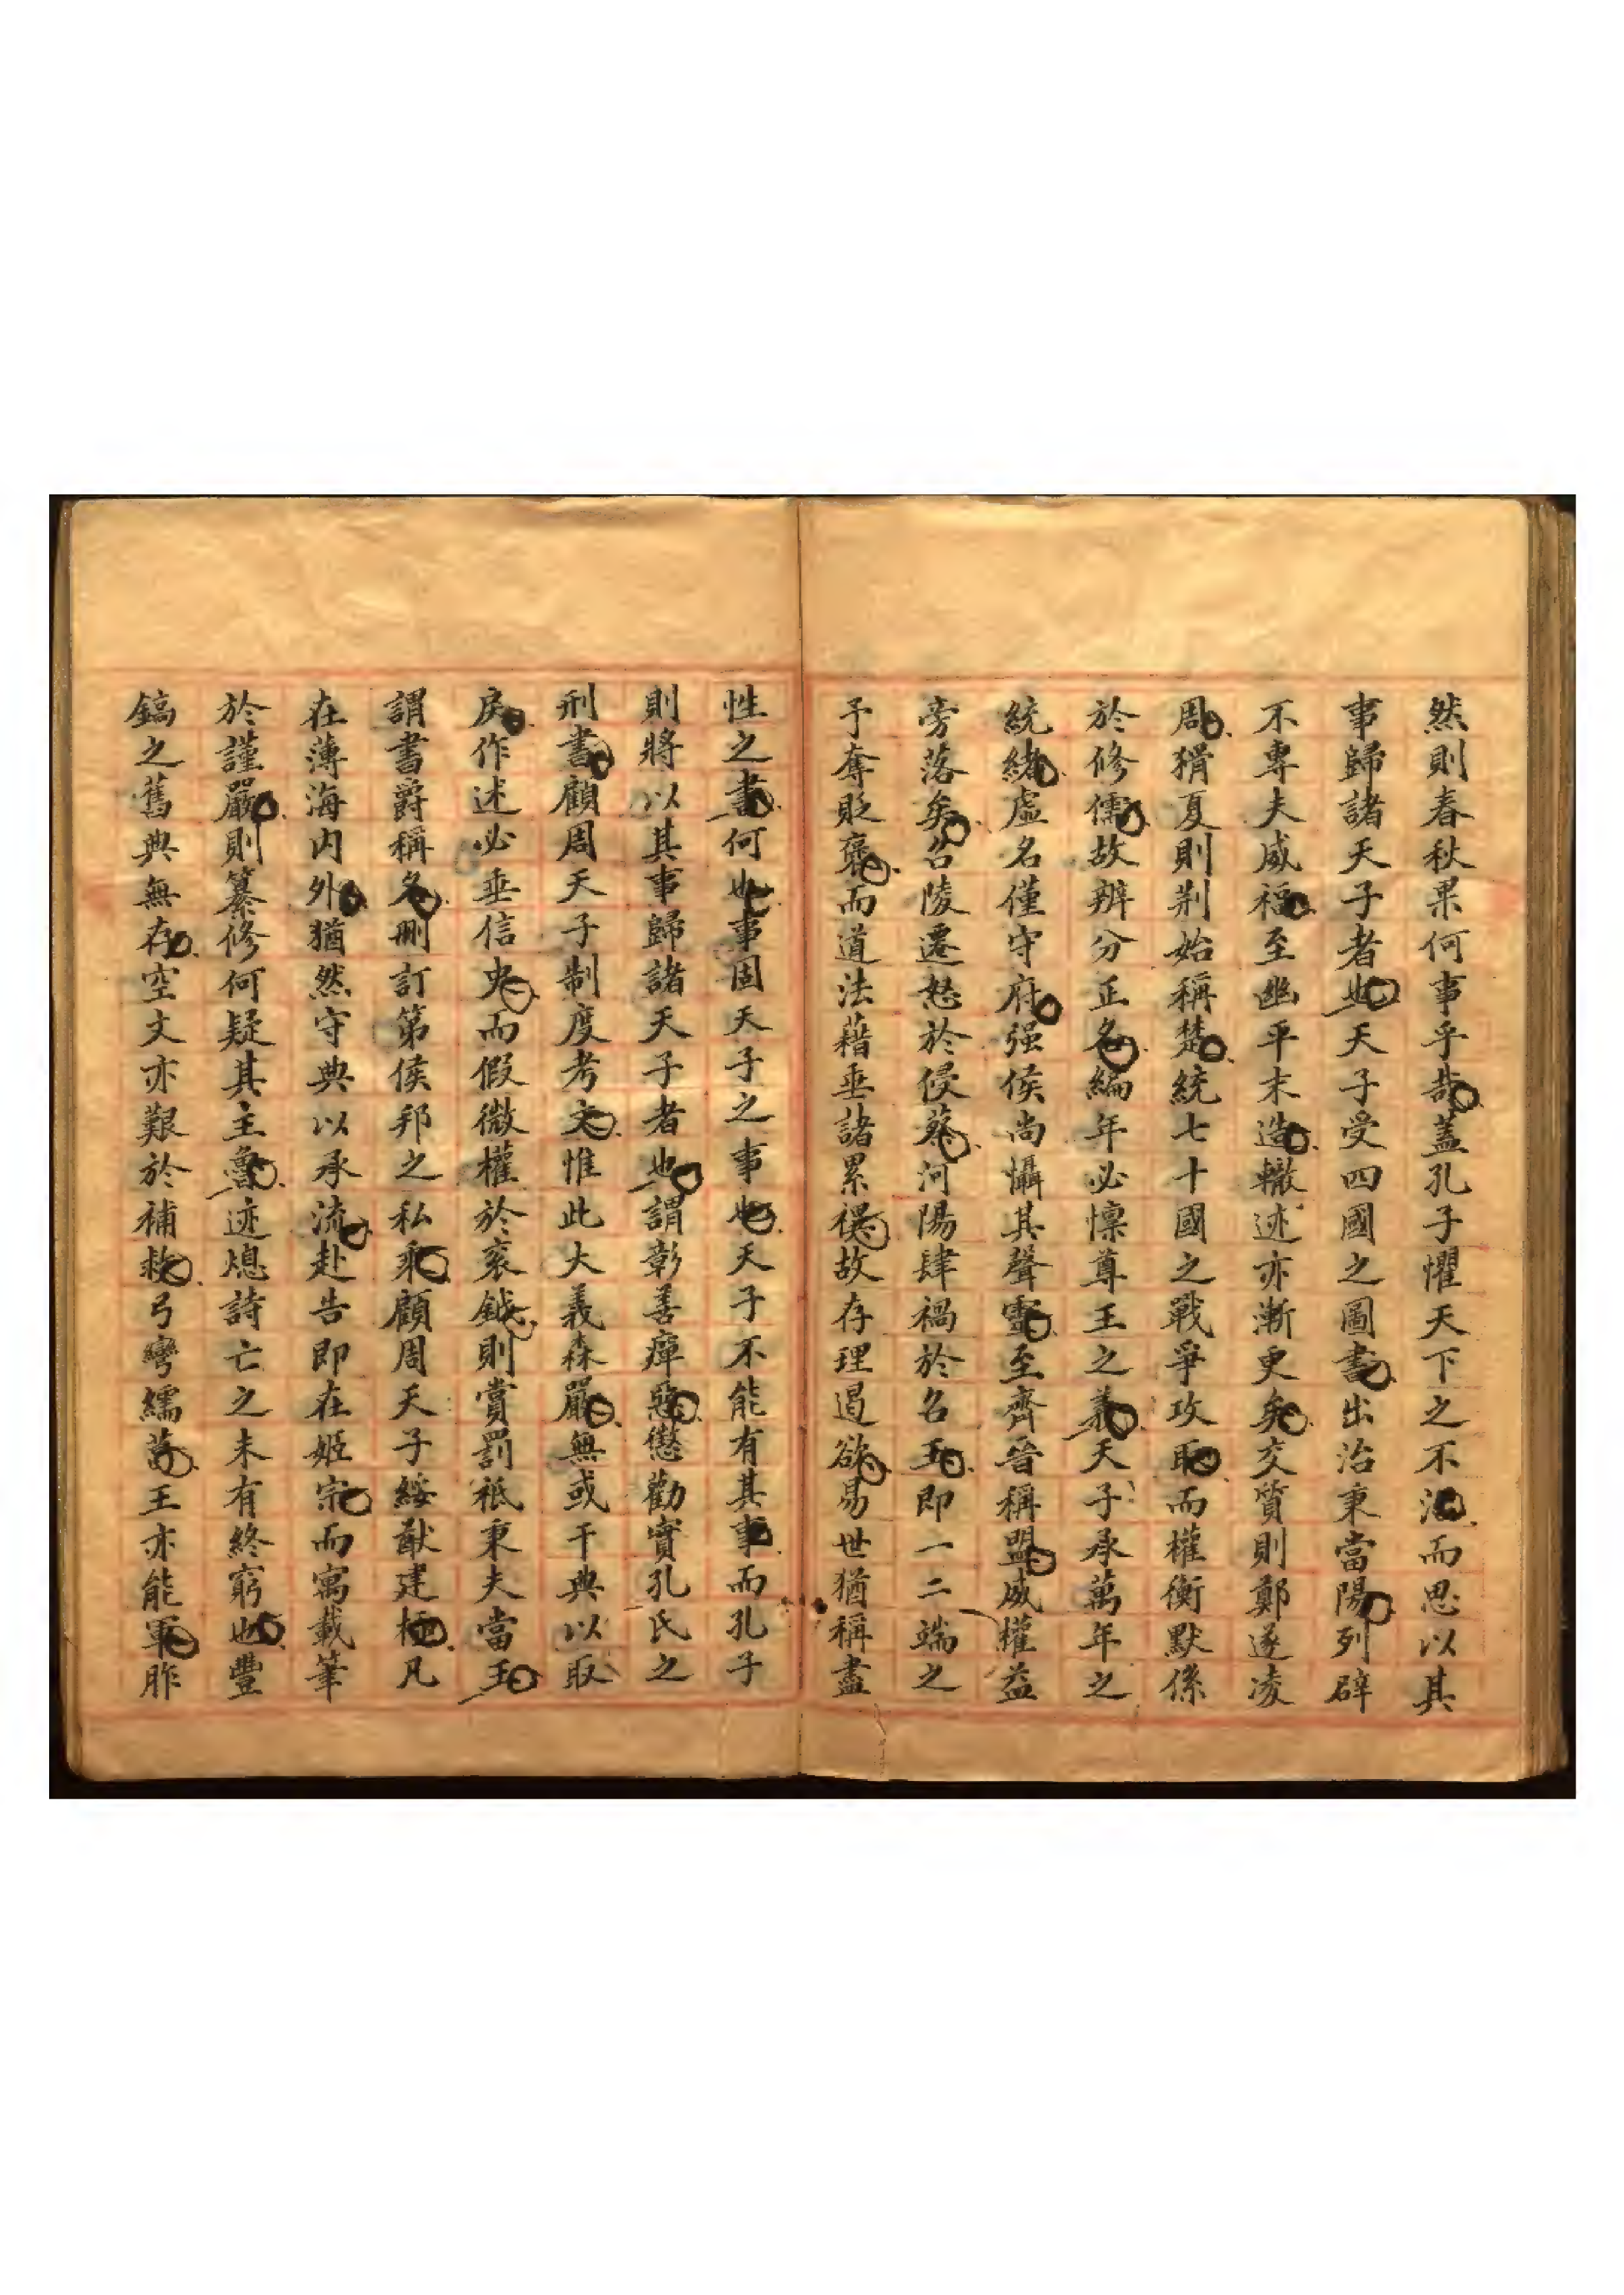 然則春秋果何事乎哉蓋孔子懼天下之不治而思以其
事歸諸天子者也天子受四國之圖書出治秉當陽列辟
不專夫威福至幽平末造轍迹亦漸更矣交質則鄭遂凌
周猾夏則荆始稱楚統七十國之戰爭攻取而權衡默係
於修儒故辨分正名編年必懍尊王之義天子承萬年之
統緒虛名僅守府强侯尚懾其聲靈至齊晉稱盟威權益
旁落矣召陵遷怒於侵蔡河陽肆禍於名王即一二端之
予奪貶褒而道法藉垂諸累禩故存理遏欲易世猶稱盡
性之書何也事固天子之事也天子不能有其事而孔子
則將以其事歸諸天子者也謂彰善癉惡懲勸實孔氏之
刑書顧周天子制度考文惟此大義森嚴無或干典以取
戾作述必垂信史而假微權於衮鉞則賞罰祇秉夫當王
謂書爵稱名刪訂第侯邦之私乘顧周天子綏猷建極凡
在薄海内外猶然守典以承流赴告即在姬宗而寓載筆
於謹嚴則纂修何疑其主魯迹熄詩亡之未有終窮也豐
鎬之舊典無存空文亦艱於補救弓彎繻葛王亦能軍胙